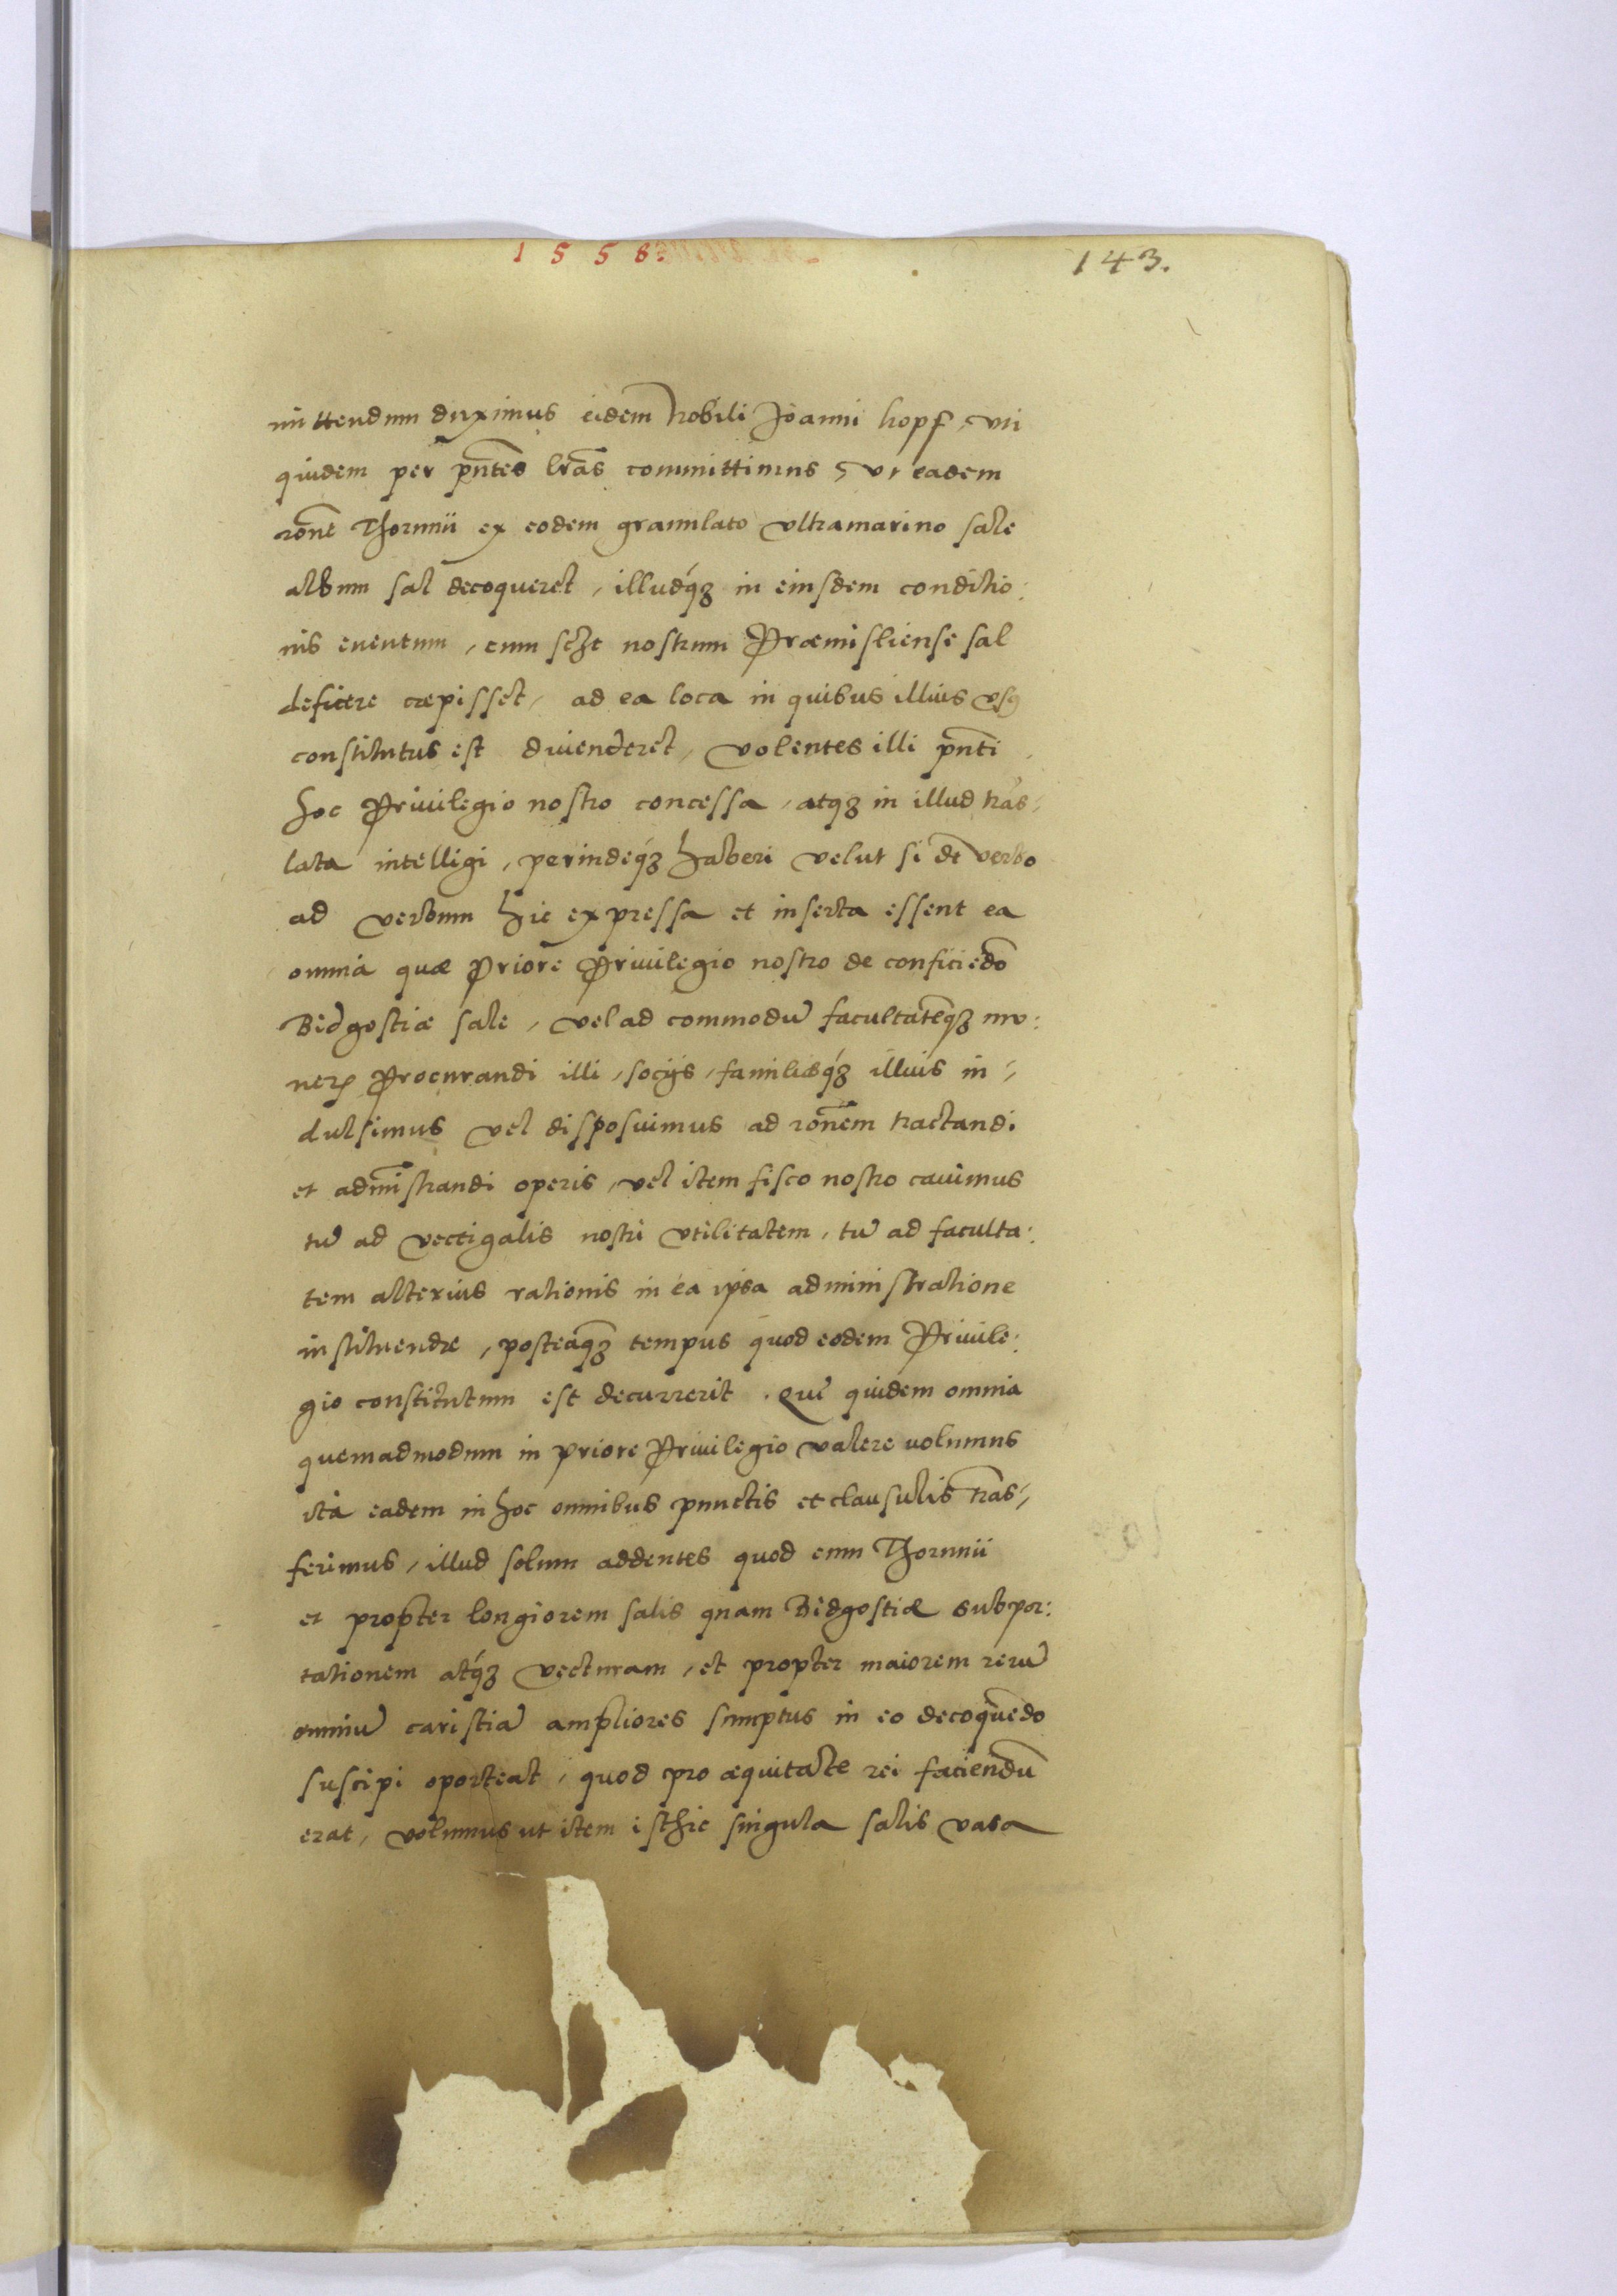 1558.
143.
mittendum duximus eidem Nobili Joanni hopf, uti
quidem per pntes lras committimus, ut eadem
rone Thorunii ex eodem granulato ultramarino sale
album sal decoqueret, illudq; in eiusdem conditio:
nis euentum, cum sczt nostrum Præmisliense sal
deficere cœpisset, ad ea loca in quibus illius usus
constitutus est diuenderet, volentes illi pnti
hoc Priuilegio nostro concessa, atq; in illud tras-
lata intelligi, perindeq; haberi velut si de verbo
ad verbum hic expressa et inserta essent ea
omnia quæ priore Priuilegio nostro de conficiedo
Bidgostiæ sale, vel ad commodu facultateq; mu:
neris procurandi illi, socijs, familiæq; illius in-
dulsimus vel disposuimus ad ronem tractandi
et admistrandi operis, vel item fisco nostro cauimus
tu ad vectigalis nostri utilitatem, tu ad faculta:
tem alterius rationis in ea ipsa administratione
instituendæ, posteaq; tempus quod eodem Priuile:
gio constitutum est decurrerit. Qui quidem omnia
quemadmodum in priore Priuilegio valere uolumus
ita eadem in hoc omnibus punctis et clausulis tras-
ferimus, illud solum addentes quod cum Thorunii
et propter longiorem salis quam Bidgostiæ subpor:
tationem atq; vecturam, et propter maiorem reru
omniu caristia ampliores sumptus in eo decoquedo
suscipi oporteat, quod pro æquitate rei faciendu
erat, volumus ut item isthic singula salis vasa